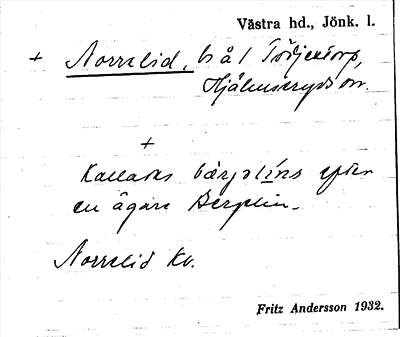 Västra hd., Jönk. l.
+ Norrelid, bå 1 Töljestorp,
Hjälmseryds sn.
+
Kallades bærjəlíns efter
en ägare Bergelin.
Norrelid Kv.
Fritz Andersson 1932.